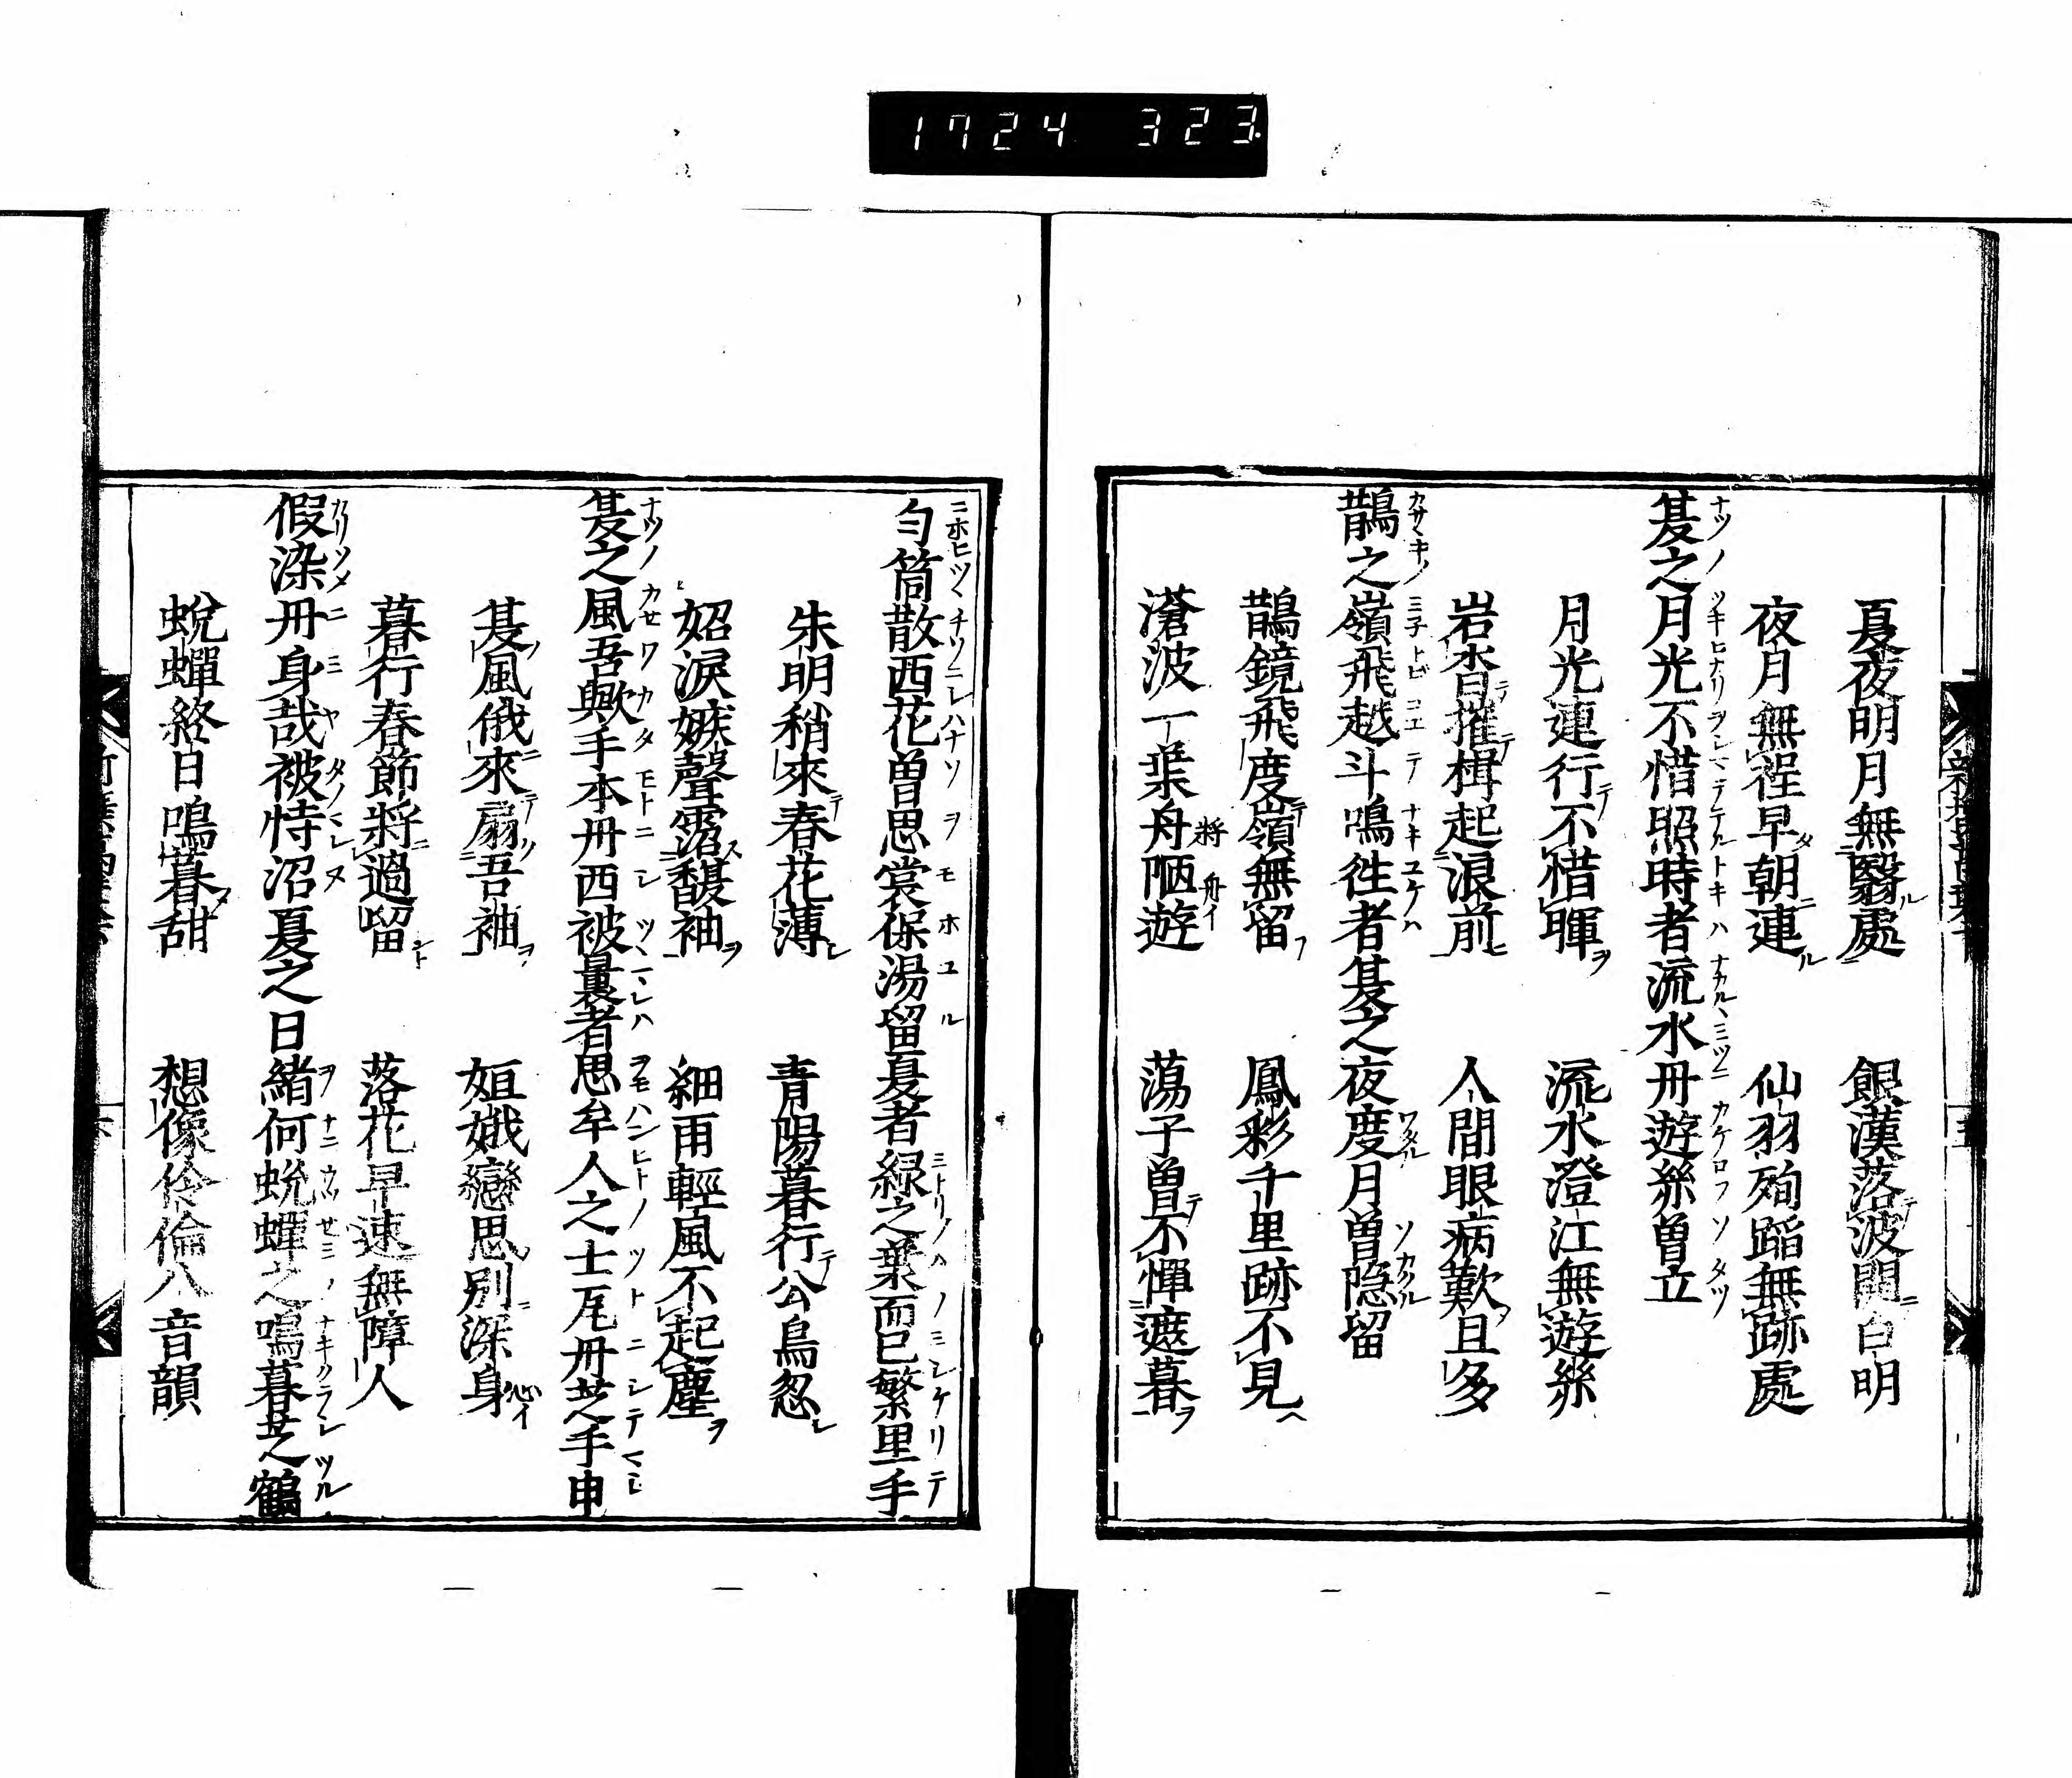 1724 323.
夏夜明月無翳處 銀漢落波閒白明
夜月無程早朝連 仙羽殉蹈無跡處
夏之月光不惜照時者流水丹遊絲曽立
月光連行不惜暉 流水澄江無遊絲
岩杳摧楫起浪前 人間眼病歎且多
鵲之嶺飛越斗鳴徃者夏之夜度月曽隠留
鵲鏡飛度嶺無留 鳳彩千里跡不見
滄波一葉舟陋遊 蕩子曽不憚遮暮
匀筒散西花曽思裳保湯留夏者緑之葉而已繁里手
朱明稍來春花薄 青陽暮行公烏忽
妱淚嫉聲霑馥袖 細雨輕風不起塵
夏之風吾歟手本丹西被裏者思牟人之士瓦丹芝手申
夏風俄來扇吾袖 姮娥戀思別深身
暮行春節將過留 落花早速無障人
假染丹身哉被恃沼夏之日緒何蛻蟬之鳴暮芝鶴
蛻蟬終日鳴暮甜 想像伶倫八音韻